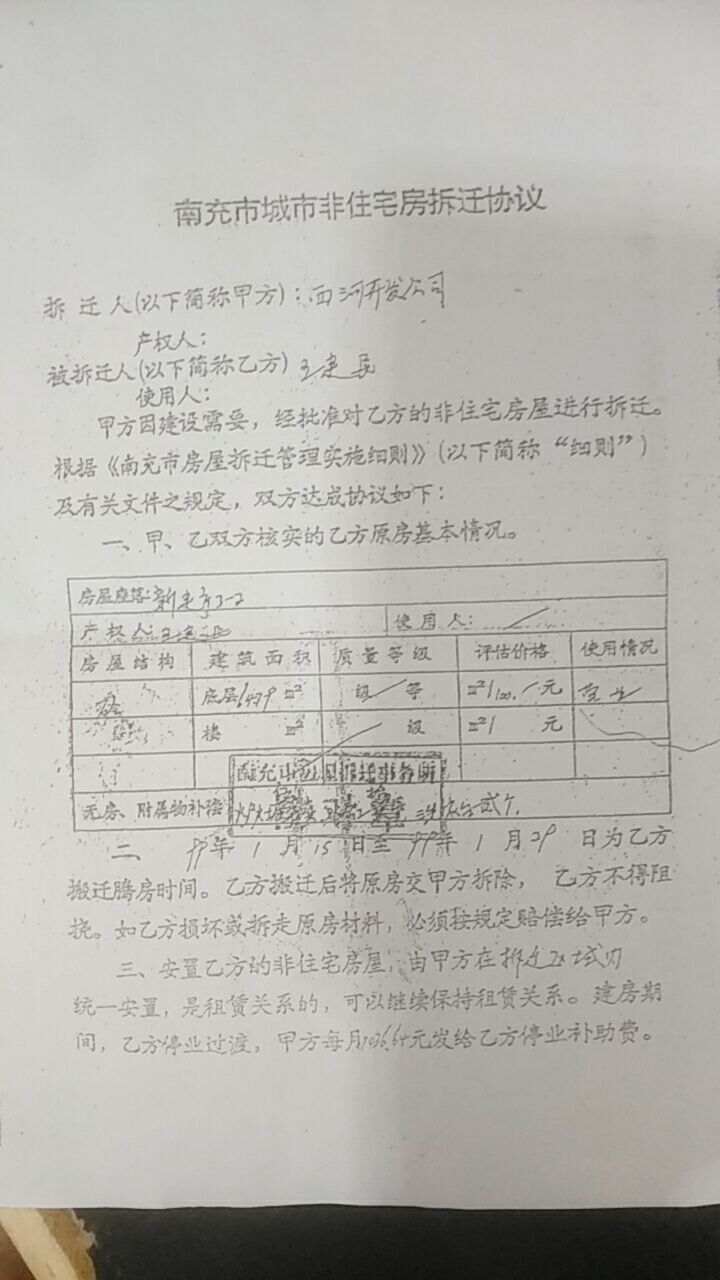 南充市城市非住宅房拆迁协议
拆迁人(以下简称甲方)：西河开发公司
产权人：
被拆迁人(以下简称乙方)
使用人：
甲方因建设需要，经批准对乙方的非住宅房屋进行拆迁。
根据《南充市房屋拆迁管理实施细则》(以下简称“细则”)
及有关文件之规定，双方达成协议如下：
一、甲、乙双方核实的乙方原房基本情况。
房屋座落：新建
产权人： 使用人：
房屋结构 建筑面积 质量等级 评估价格 使用情况
底层 m² 级 等 m²/ 元
楼 m² 级 m²/ 元
南充市 拆迁事务所
无房、附属物补偿
二 99年1月15日至99年1月29日为乙方
搬迁腾房时间。乙方搬迁后将原房交甲方拆除， 乙方不得阻
挠。如乙方损坏或拆走原房材料，必须按规定赔偿给甲方。
三、安置乙方的非住宅房屋，由甲方在拆迁区域内
统一安置，是租赁关系的，可以继续保持租赁关系。建房期
间，乙方停业过渡，甲方每月1036.64元发给乙方停业补助费。